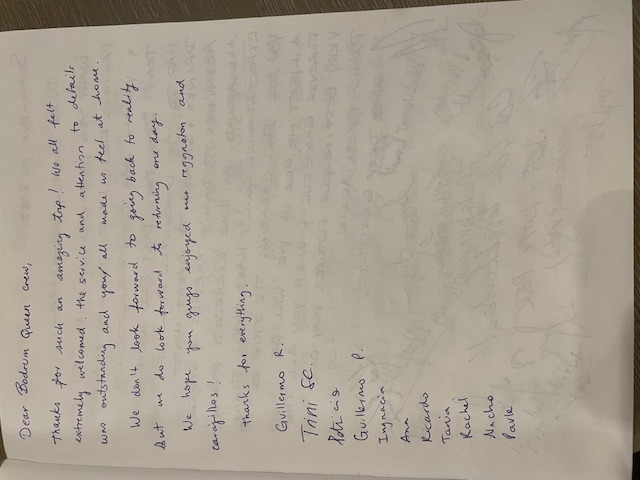 Dear Bodrum Queen crew,
Thanks for such an amazing trip! We all felt
extremely welcomed. the service and attention to details
was outstanding and you all made us feel at home.
We don't look forward to going back to reality
but we do look forward to returning one day.
We hope you guys enjoyed our reggaeton and
carajillos!
thanks for everything.
Guillermo R.
TRINI SC.
Patricia
Guillermo P.
Ignacia
Ana
Ricardo
Rachel
Nacho